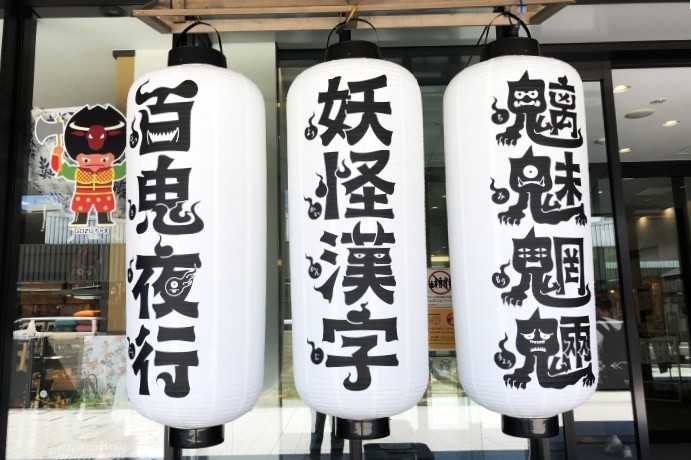 百鬼夜行
妖怪漢字
魑魅魍魎
GOZU